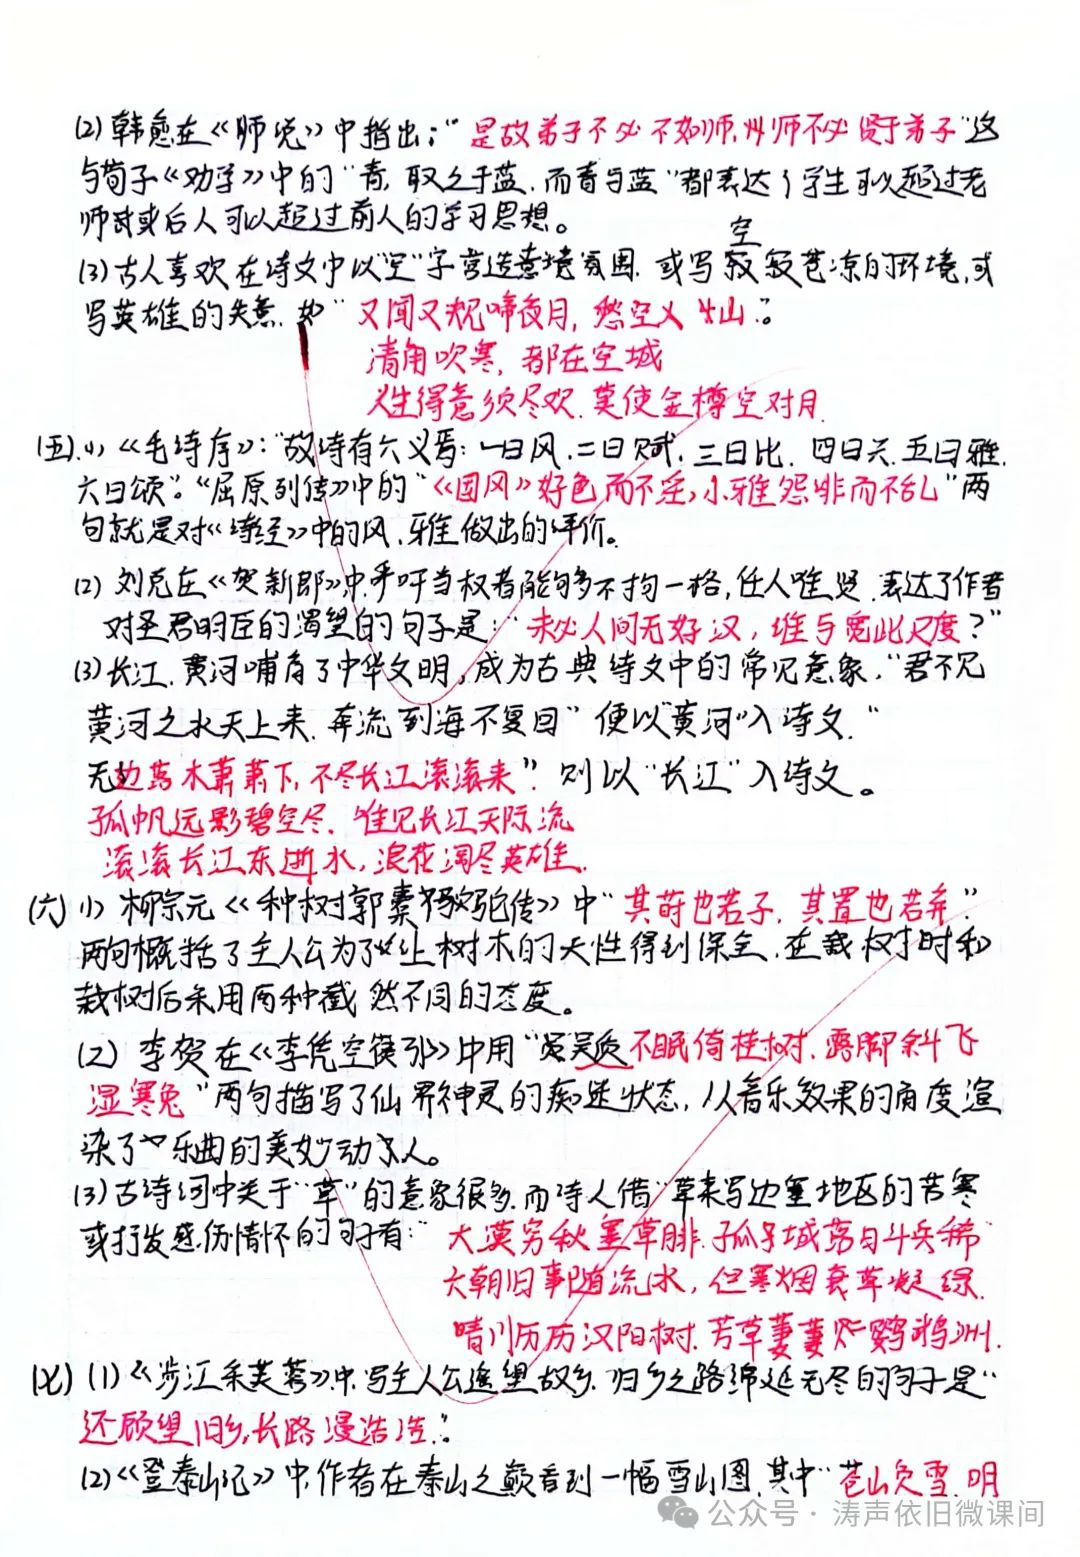 (2) 韩愈在《师说》中指出："是故弟子不必不如师,师不必贤于弟子"这
与荀子《劝学》中的"青,取之于蓝,而青于蓝"都表达了学生可以超过老
师或后人可以超过前人的学习思想。
空
(3)古人喜欢在诗文中以"空"字营造意境氛围.或写寂寂苍凉的环境,或
写英雄的失意.如"又闻又规啼夜月,愁空山"。
清角吹寒,都在空城
人生得意须尽欢.莫使金樽空对月.
(五).(1)《毛诗序》:"故诗有六义焉:一曰风.二曰赋.三曰比.四曰兴.五曰雅.
六曰颂"."屈原列传》中的"《国风》好色而不淫,小雅怨悱而不乱"两
句就是对《诗经》中的风.雅做出的评价。
(2) 刘克在《贺新郎》中.呼吁当权者能够多不拘一格,任人唯贤.表达了作者
对圣君明臣的渴望的句子是:"未必人间无好汉,谁与宽此尺度?"
(3)长江.黄河哺育了中华文明,成为古典诗文中的常见意象,"君不见
黄河之水天上来.奔流到海不复回"便以"黄河"入诗文."
无边落木萧萧下,不尽长江滚滚来"则以"长江"入诗文。
孤帆远影碧空尽.唯见长江天际流
滚滚长江东逝水,浪花淘尽英雄.
(六)(1)柳宗元《种树郭橐驼传》中"其莳也若子,其置也若弃"
两句概括了主人公为了让树木的天性得到保全.在栽树时和
栽树后采用两种截然不同的态度。
(2) 李贺在《李凭空篌引》中用"吴质不眠倚桂树.露脚斜飞
湿寒兔"两句描写了仙界神灵的痴迷状态,从音乐效果的角度渲
染了乐曲的美妙动人。
(3)古诗词中关于"草"的意象很多.而诗人借"草来写边塞地区的苦寒
或抒发感伤情怀的句子有:"大漠穷秋塞草腓.孤城落日斗兵稀
六朝旧事随流水,但寒烟衰草凝绿.
晴川历历汉阳树.芳草萋萋鹦鹉洲.
(七)(1)《涉江采芙蓉》中.写主人公遥望故乡.归乡之路绵延无尽的句子是"
还顾望旧乡,长路漫浩浩"。
(2)《登泰山记》中,作者在泰山之巅看到一幅雪山图.其中"苍山负雪.明
公众号·涛声依旧微课间